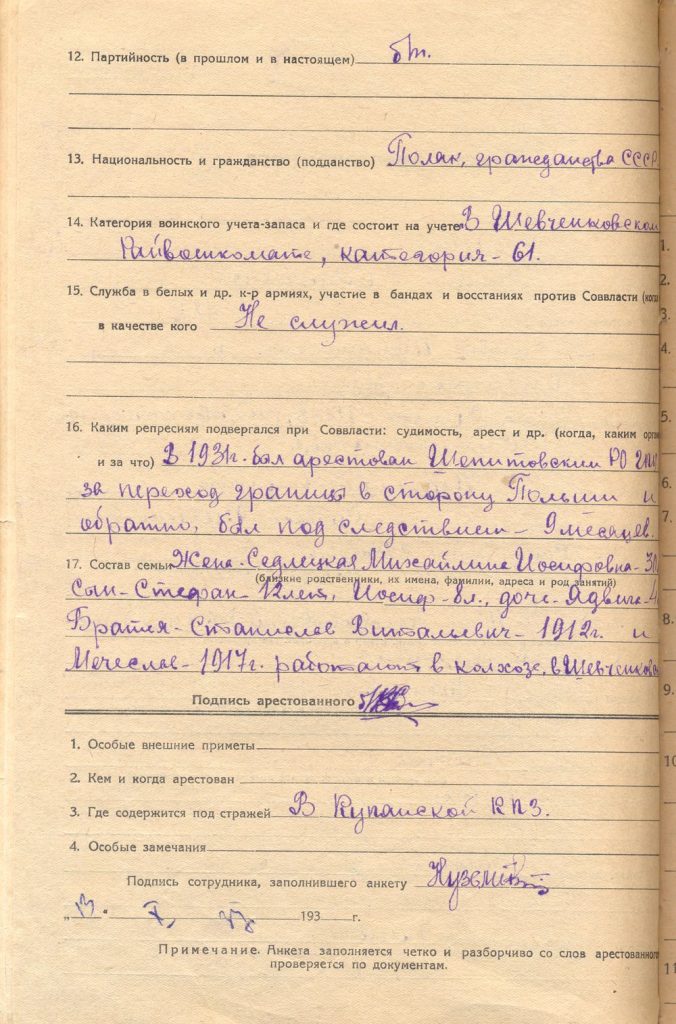 12. Партийность (в прошлом и в настоящем) б/п.
13. Национальность и гражданство (подданство) Поляк, гражданства СССР
14. Категория воинского учета-запаса и где состоит на учете В Шевченковском
Райвоенкомате, категория - 61.
15. Служба в белых и др. к-р армиях, участие в бандах и восстаниях против Соввласти (когда
в качестве кого Не служил.
16. Каким репресиям подвергался при Соввласти: судимость, арест и др. (когда, каким орган
и за что) В 1931г. был арестован Шепитовским РО ГПУ
за переход границы в сторону Польши и
обратно, был под следствием - 9 месяцев.
17. Состав семьи Жена - Седлецкая Михайлина Иосифовна -
(близкие родственники, их имена, фамилии, адреса и род занятий)
Сын - Стефан - 12 лет, Иосиф - 8 л., дочь - Ядвига - 4
Братья - Станислав Витальевич - 1912 г. и
Мечеслав - 1917 г. работают в колхозе, в Шевченково
Подпись арестованного
1. Особые внешние приметы
2. Кем и когда арестован
3. Где содержится под стражей В Купянской КПЗ.
4. Особые замечания
Подпись сотрудника, заполнившего анкету
„13." X 193 г.
Примечание. Анкета заполняется четко и разборчиво со слов арестованного
проверяется по документам.
1.
2.
3.
4.
5.
6.
7.
8.
9.
10
11